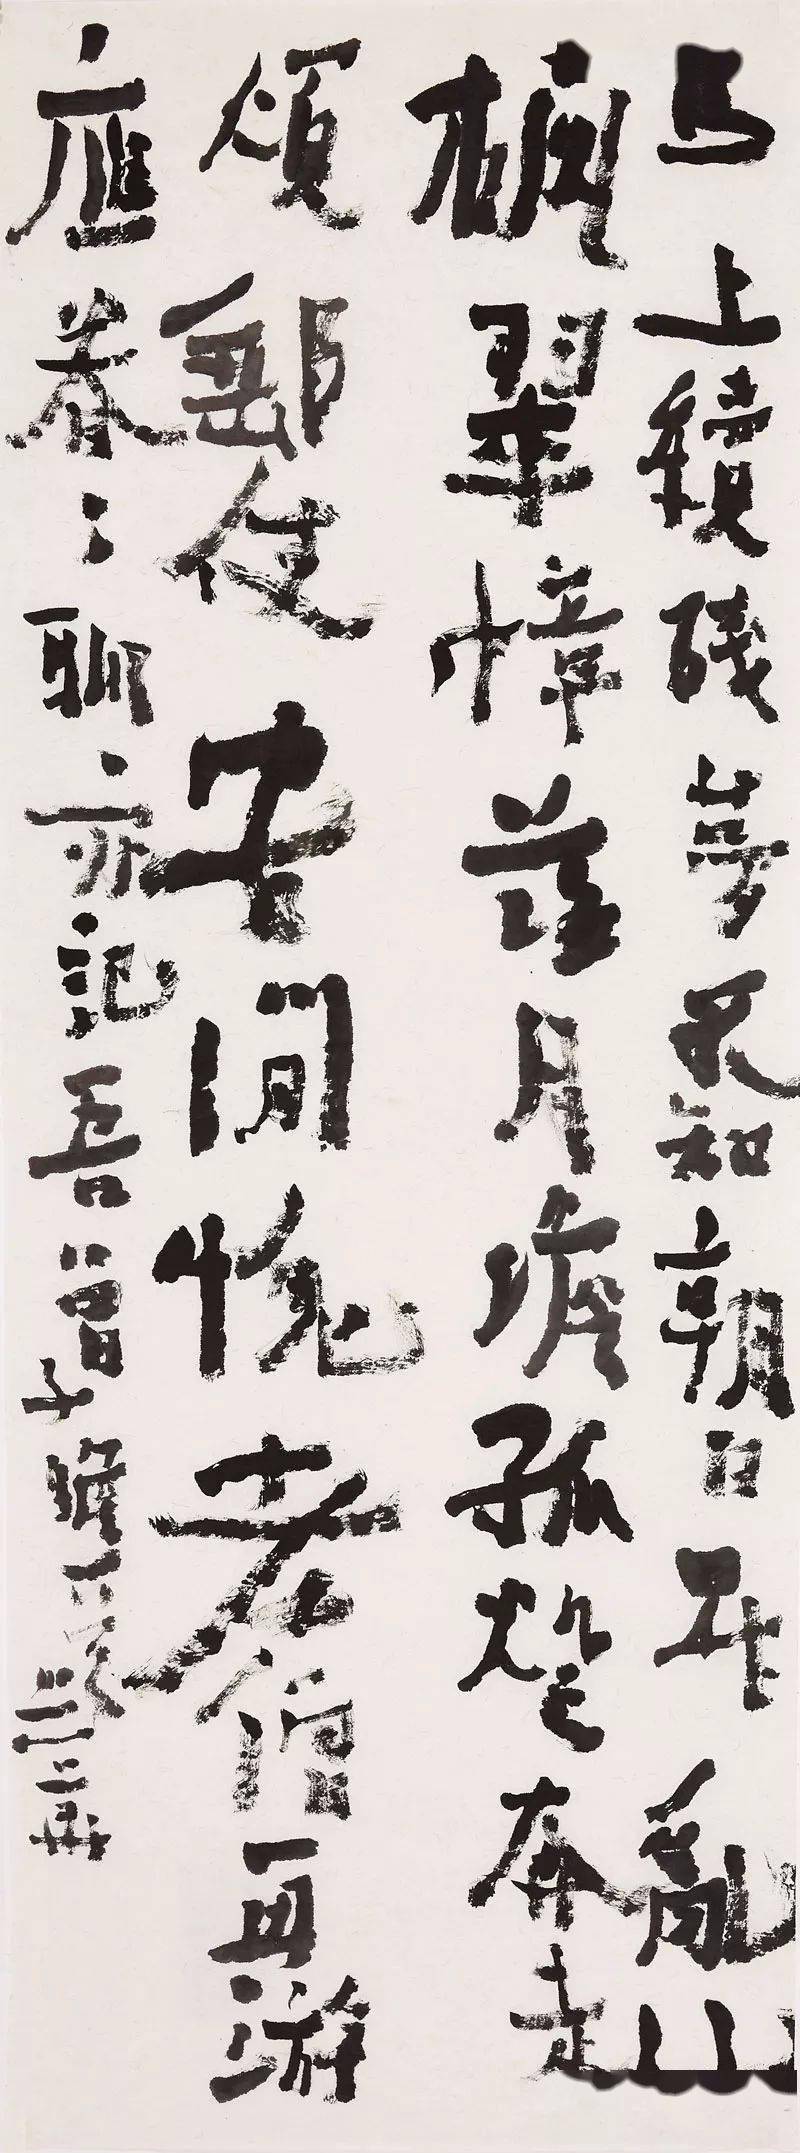 马上續殘夢不知朝日昇亂山
橫翠幛落月澹孤燈奔走
煩郵使安閒愧老僧再游
應眷々聊亦記吾曾子瞻